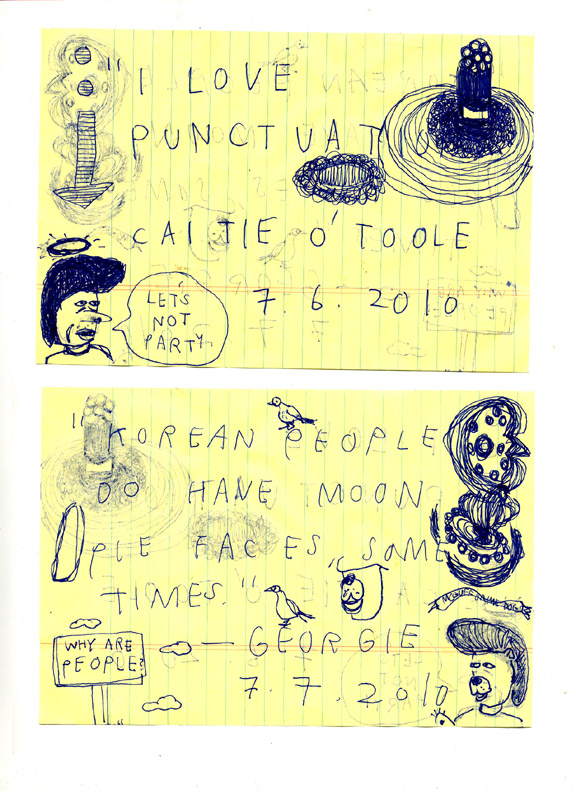 "I LOVE
PUNCTUATIO
CAITIE O'TOOLE
7.6.2010
LET'S
NOT
PARTY
"KOREAN PEOPLE
DO HAVE MOON
PIE FACES, SOME
TIMES."
— GEORGIE
7.7.2010
WHY ARE
PEOPLE?